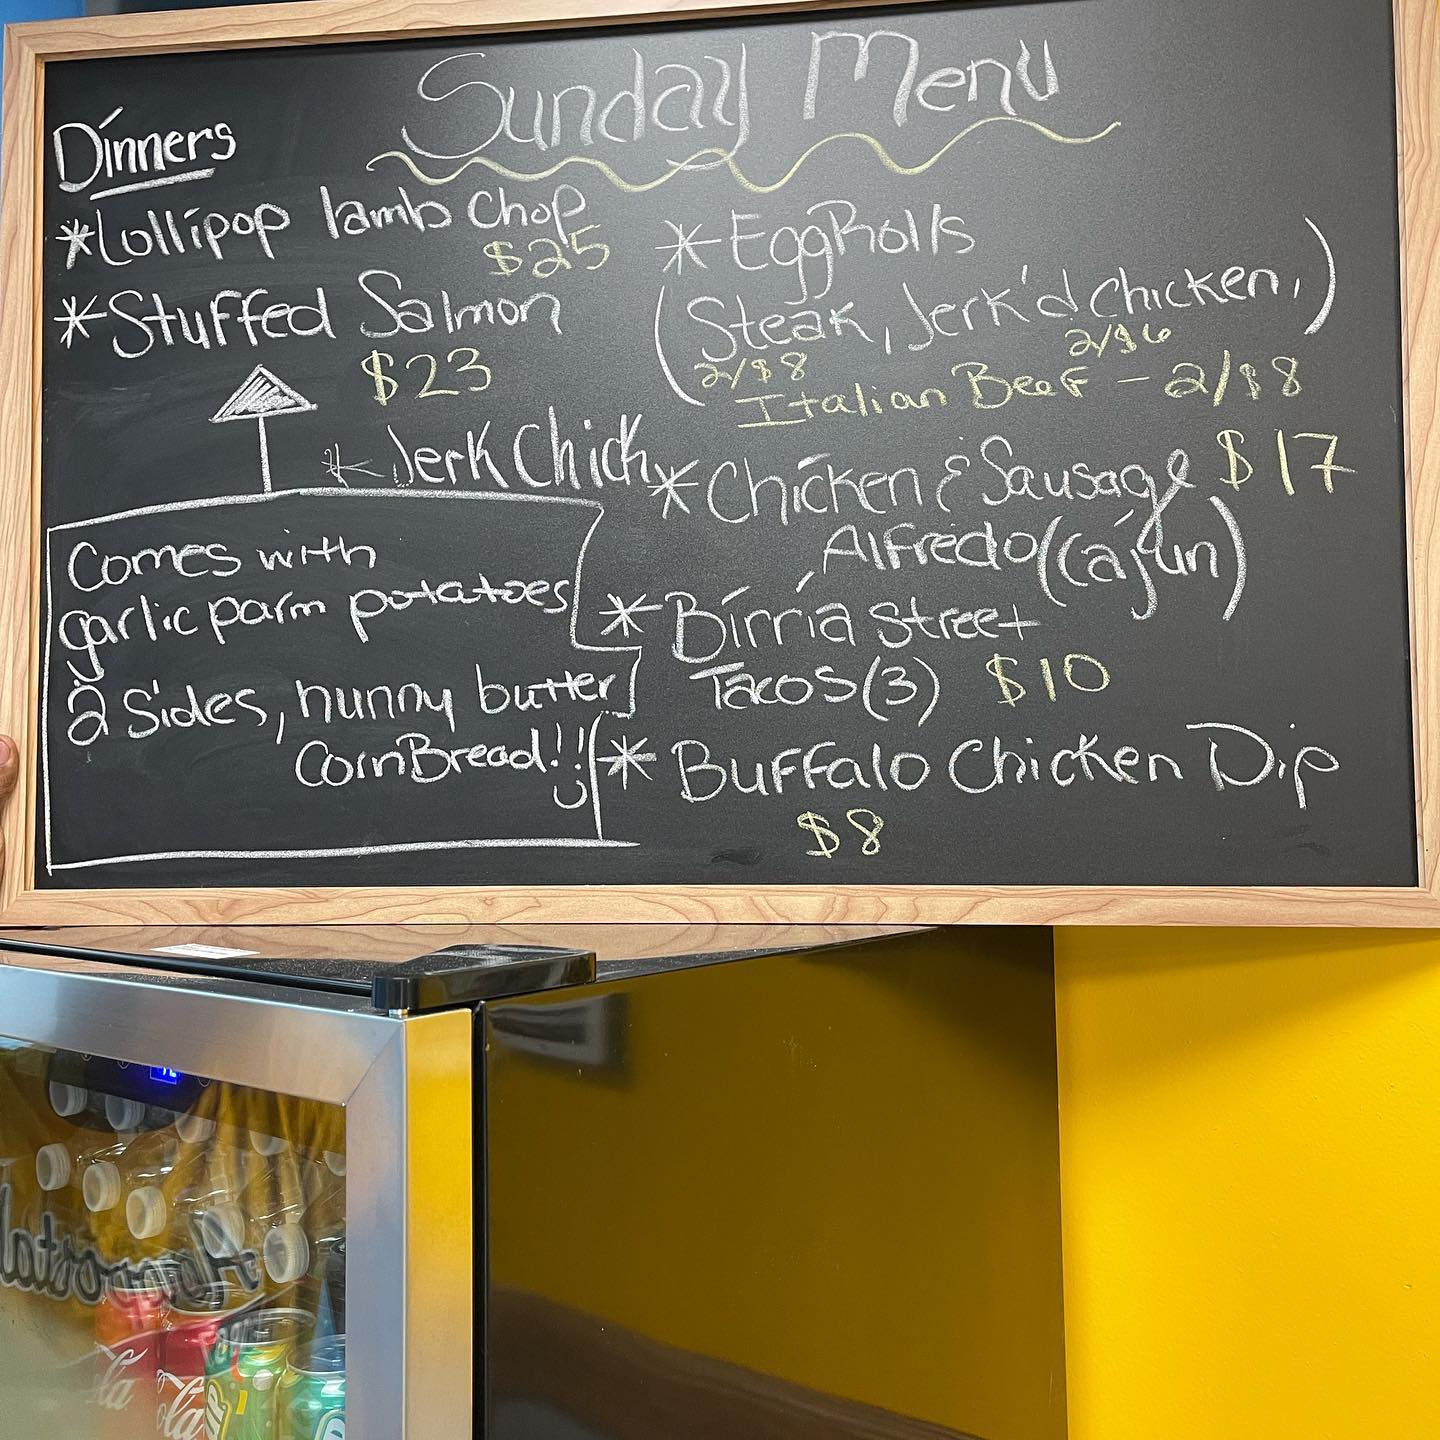 Sunday Menu
Dinners
*Lollipop lamb chop
$25
*Stuffed Salmon
$23
* Jerk Chick
Comes with
garlic parm potatoes
2 Sides, hunny butter
CornBread!!
*EggRolls
(Steak, Jerk'd Chicken,)
2/$8 2/$6
Italian Beef - 2/$8
*Chicken & Sausage $17
Alfredo (Cajun)
*Birria Street
Tacos (3) $10
*Buffalo Chicken Dip
$8